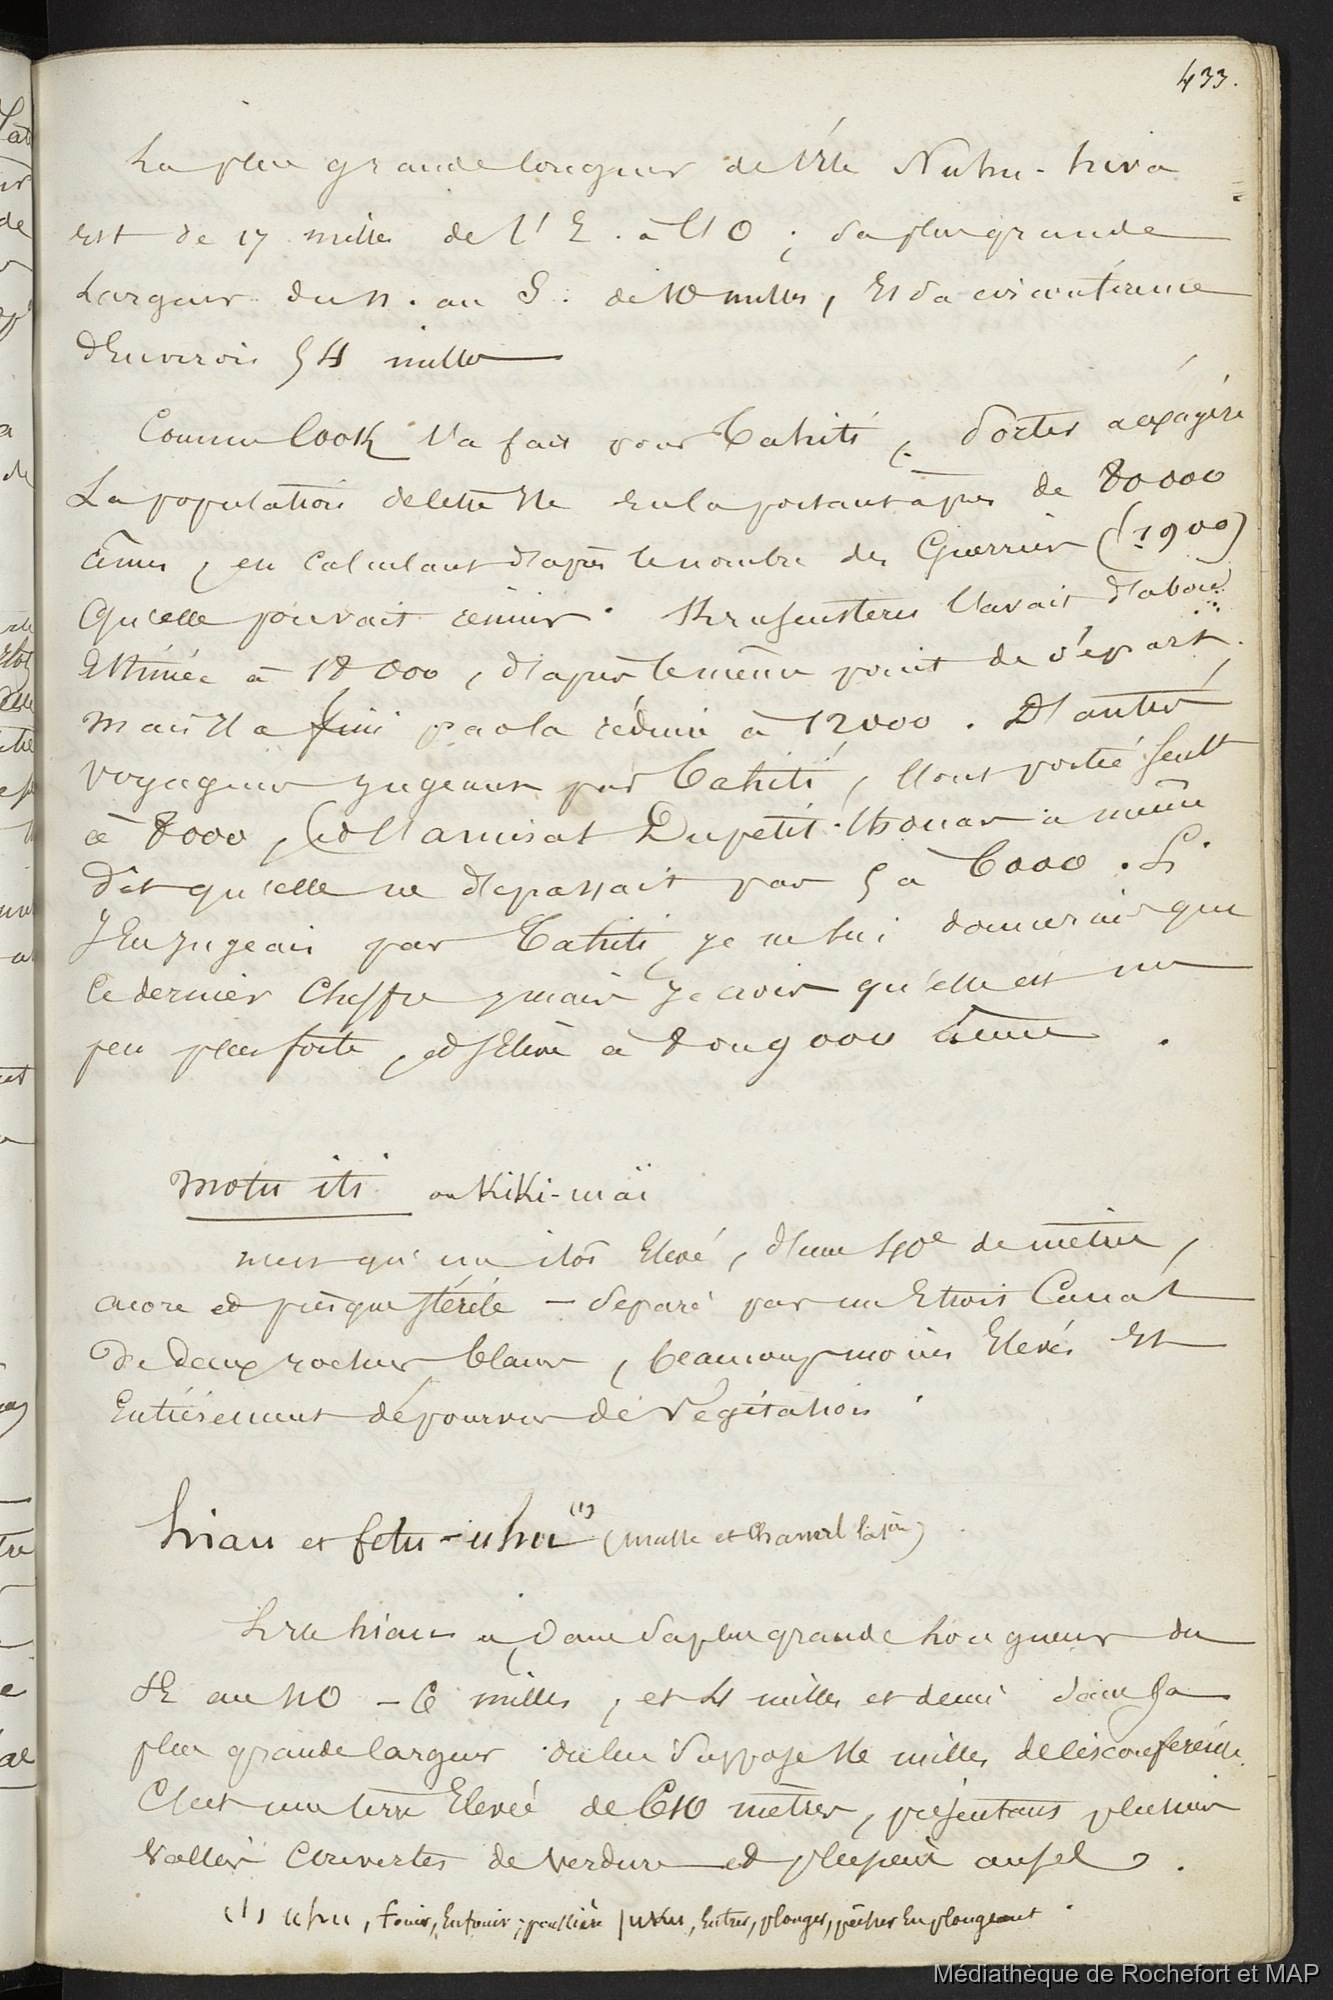 433.
La plus grande longueur de l'Ile Nuhu-hiva
Est de 17 milles de l'E. à l'O ; Sa plus grande
Largeur du N. au S. de 10 milles, Et Sa circonférence
d'Environ 54 milles
Comme Cook l'a fait pour Tahiti, Porter a exagéré
La population de cette Ile en la portant à près de 80000
âmes, en calculant d'après le nombre des Guerriers (1900)
Qu'elle pouvait réunir. Krusenstern l'avait d'abord
Estimée à 18000, d'après le même point de départ.
mais Il a fini par la réduire à 12000. D'autres
voyageurs jugeant par Tahiti, l'ont portée Seult
à 8000, Et l'amiral Dupetit-thouars a même
dit qu'elle ne dépassait pas 5 à 6000. Si
J'En jugeais par Tahiti, je ne lui donnerais que
Ce dernier Chiffre, mais je crois qu'elle est un
peu plus forte, et s'Elève à 8 ou 9000 âmes.
Motu iti ou KiKi-maï
n'est qu'un ilot Elevé, d'une 40e de mètres,
acore et presque stérile – Séparé par un Etroit Canal
De deux rochers blancs, beaucoup moins Elevés Et
Entièrement dépourvus de Végétation.
hiau et fetu-uhu (1) (Masse et Chanal)
L'Ile hiau a, dans Sa plus grande Longueur du
SE au NO – 6 milles, et 4 milles et demi dans Sa
plus grande largeur. On lui Suppose 16 milles de circonférence.
C'est une terre Elevée de 610 mètres, présentant plusieurs
vallées couvertes de verdure et
(1) uhu, fouir, Enfouir ; poussière / uku, Entrer, plonger, pêcher En plongeant.
Médiathèque de Rochefort et MAP